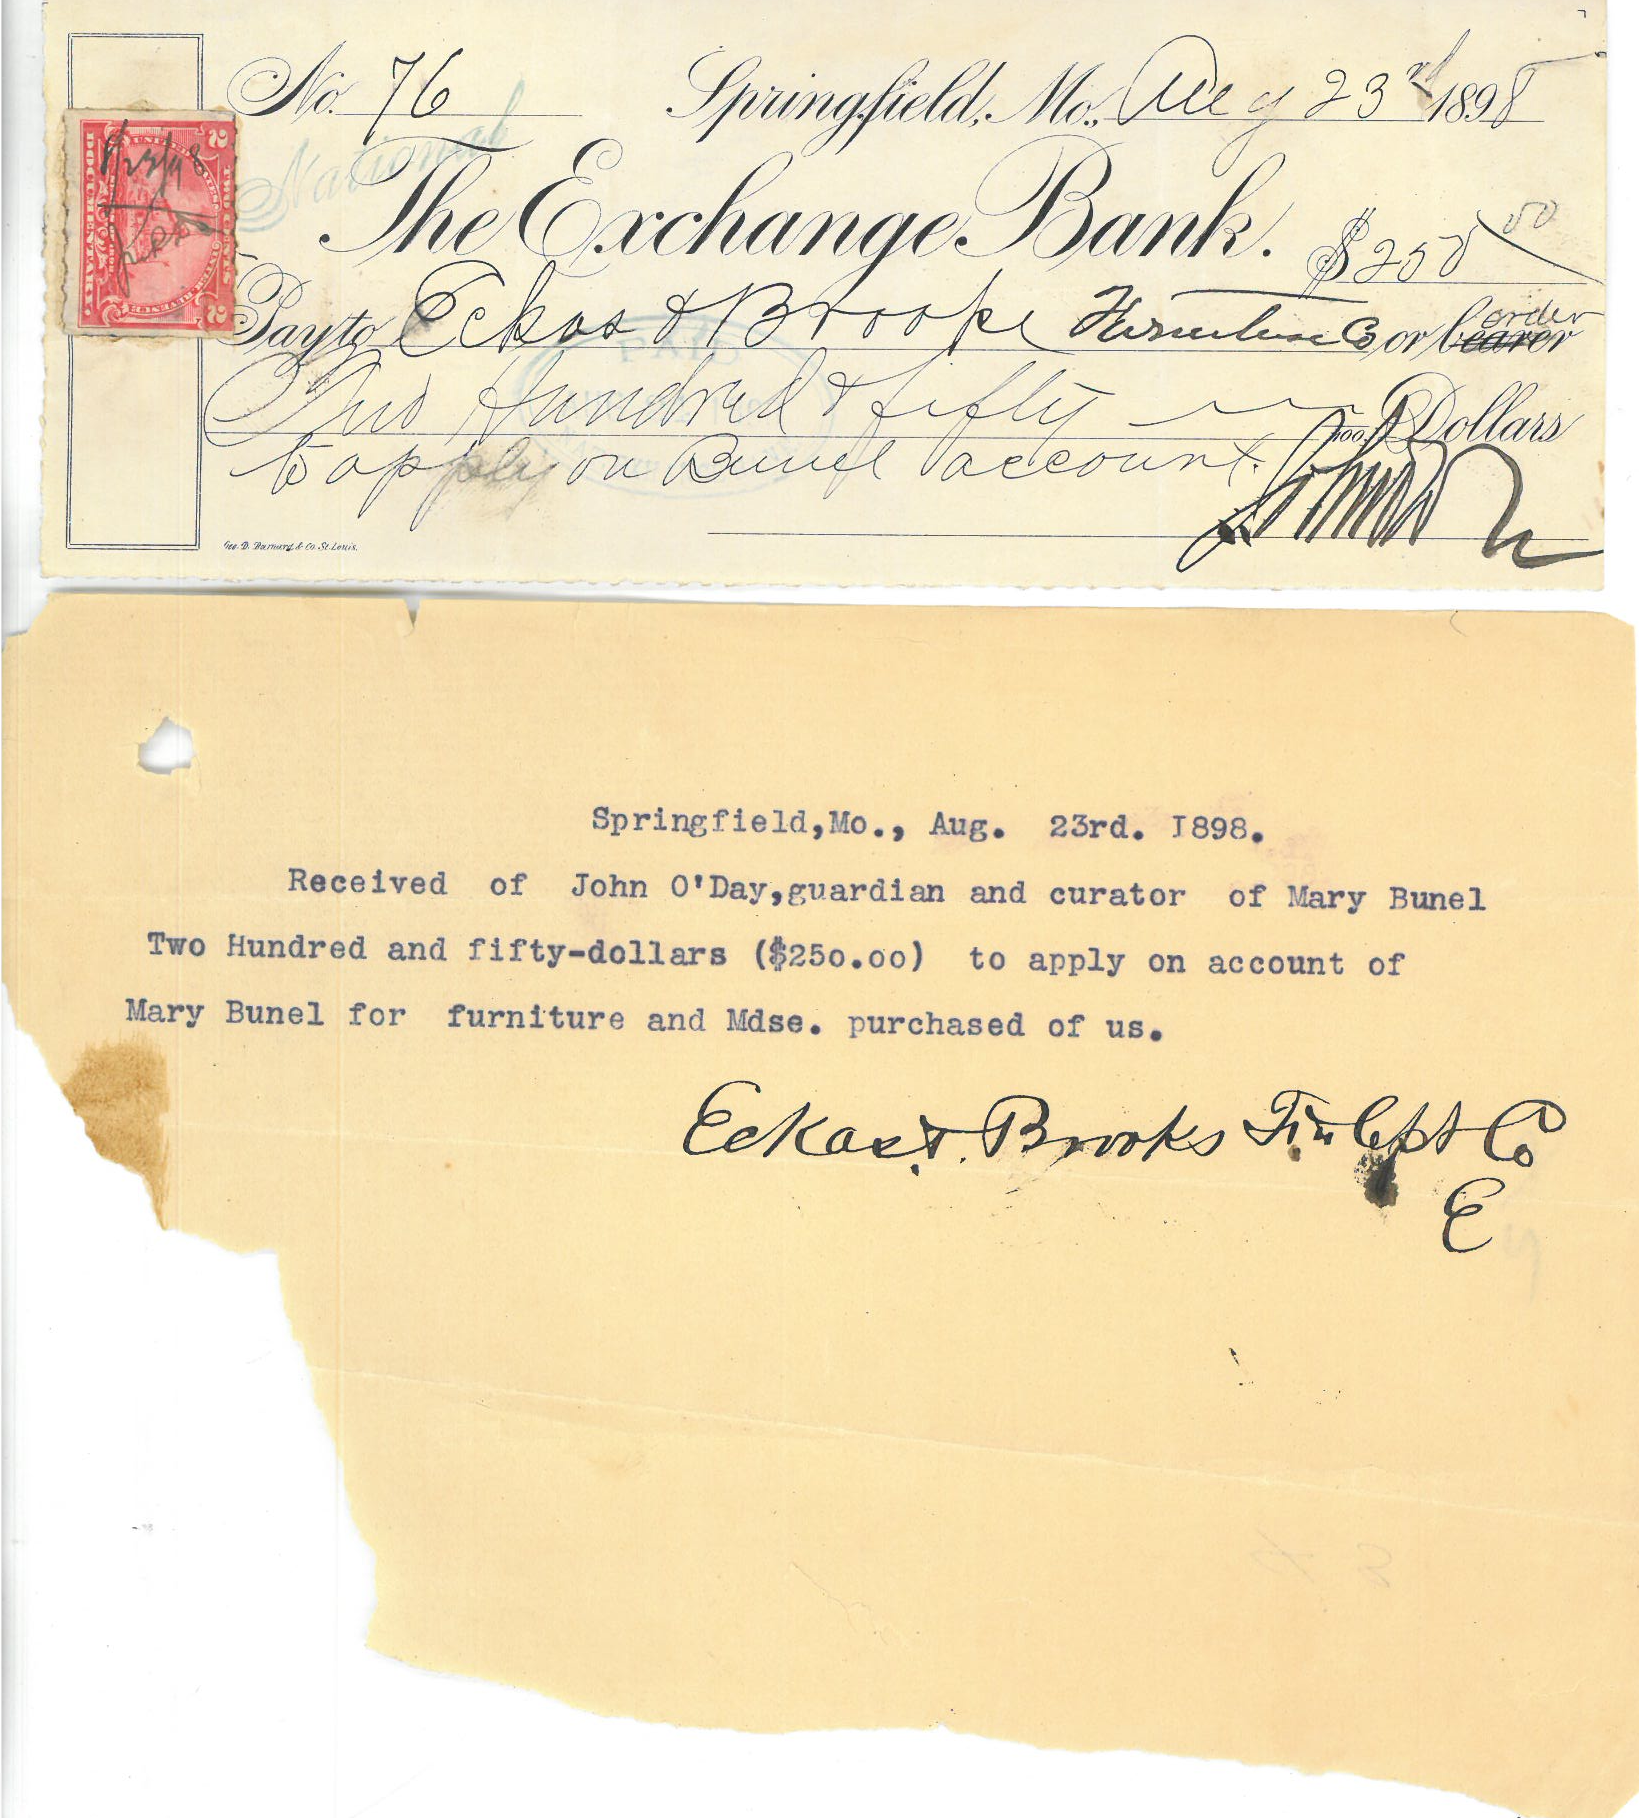 No. 76 Springfield, Mo., Aug 23rd 1898
National
The Exchange Bank.
$250 00
Pay to Eckas & Brooke Furniture Co or bearer order
Two Hundred & fifty 100 Dollars
to apply on Bunel account.
Geo. D. Barnard & Co. St. Louis.
2 2
DOCUMENTARY
TWO CENTS
8/23/98
PAID
Springfield,Mo., Aug. 23rd. I898.
Received of John O'Day,guardian and curator of Mary Bunel
Two Hundred and fifty-dollars ($250.00) to apply on account of
Mary Bunel for furniture and Mdse. purchased of us.
Eckas & Brooks Co
E